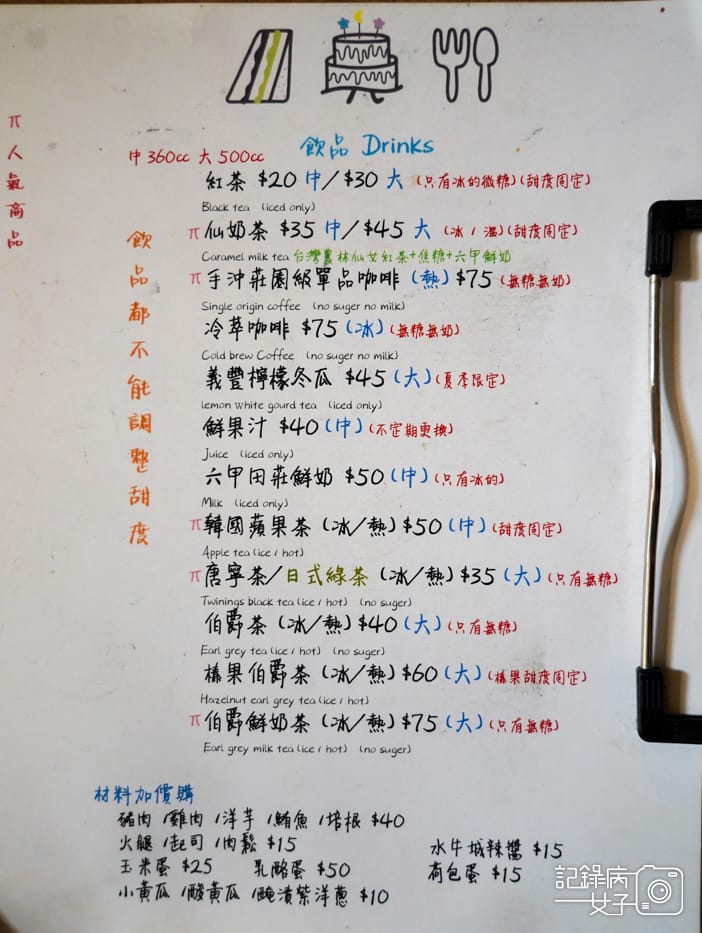 π人氣商品
飲品 Drinks
中360cc 大500cc
飲品都不能調整甜度
紅茶 $20 中/$30 大 (只有冰的微糖)(甜度固定)
Black tea (iced only)
π仙奶茶 $35 中/$45 大 (冰/溫)(甜度固定)
Caramel milk tea 台灣農林仙女紅茶+焦糖+六甲鮮奶
π手沖莊園級單品咖啡 (熱) $75 (無糖無奶)
Single origin coffee (no suger no milk)
冷萃咖啡 $75 (冰) (無糖無奶)
Cold brew Coffee (no suger no milk)
義豐檸檬冬瓜 $45 (大) (夏季限定)
lemon white gourd tea (iced only)
鮮果汁 $40 (中) (不定期更換)
Juice (iced only)
六甲田莊鮮奶 $50 (中) (只有冰的)
Milk (iced only)
π韓國蘋果茶 (冰/熱) $50 (中) (甜度固定)
Apple tea (ice / hot)
π唐寧茶/日式綠茶 (冰/熱) $35 (大) (只有無糖)
Twinings black tea (ice / hot) (no suger)
伯爵茶 (冰/熱) $40 (大) (只有無糖)
Earl grey tea (ice / hot) (no suger)
榛果伯爵茶 (冰/熱) $60 (大) (榛果甜度固定)
Hazelnut earl grey tea (ice / hot)
π伯爵鮮奶茶 (冰/熱) $75 (大) (只有無糖)
Earl grey milk tea (ice / hot) (no suger)
材料加價購
豬肉/雞肉/洋芋/鮪魚/培根 $40
火腿/起司/肉鬆 $15
水牛城辣醬 $15
玉米蛋 $25 乳酪蛋 $50
荷包蛋 $15
小黃瓜/酸黃瓜/醃漬紫洋蔥 $10
記錄病女子